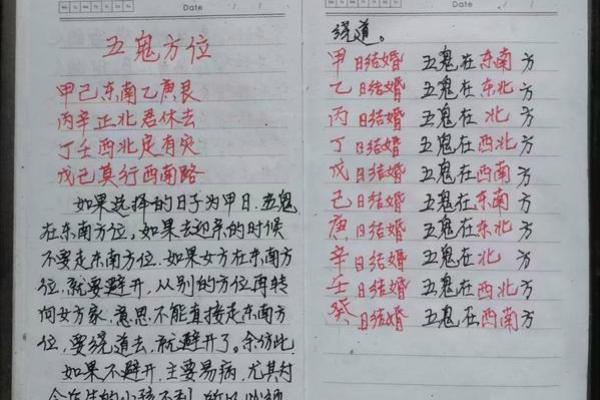 Date
五鬼方位
甲己东南乙庚艮
丙辛正北君休去
丁壬西北定有灾
戊己莫行西南路
如果选择的日子为甲日.五鬼
在东南方位,如果去迎亲的时候
不要走东南方位.如果女方在东南方
位,就要避开,从别的方位再转
向女方家.意思.不能直接走东南方
位,要绕道去,就避开了。余仿此.
如果不避开.主要易病,尤其对
Date
绕道。
甲日结婚 五鬼在东南方
乙日结婚 五鬼在东北方
丙日结婚 五鬼在 北 方
丁日结婚 五鬼在西北方
戊日结婚 五鬼在西南方
己日结婚 五鬼在东南方
庚日结婚 五鬼在东北方
辛日结婚 五鬼在 北 方
壬日结婚 五鬼在西北方
癸日结婚 五鬼在西南方